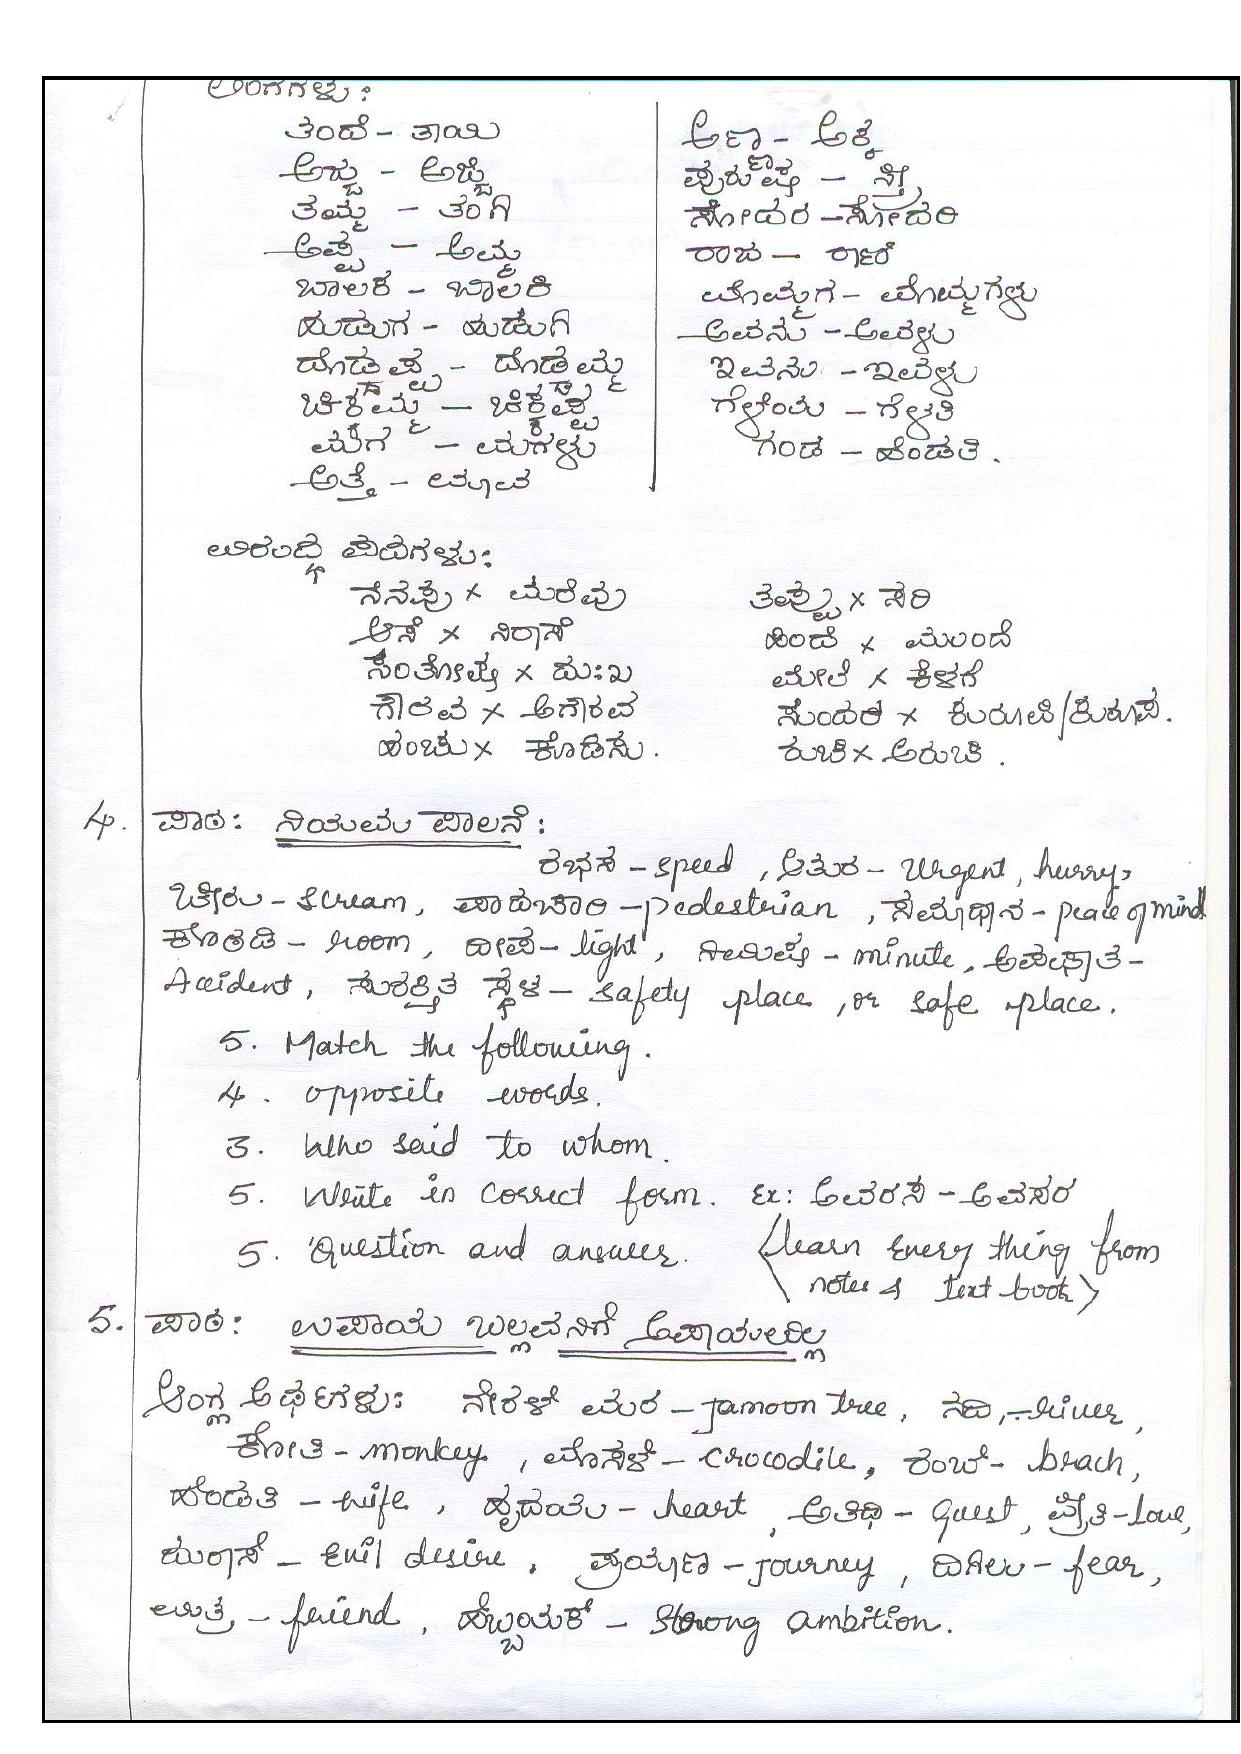 ಲಿಂಗಗಳು :
ತಂದೆ - ತಾಯಿ
ಅಜ್ಜ - ಅಜ್ಜಿ
ತಮ್ಮ - ತಂಗಿ
ಅಪ್ಪ - ಅಮ್ಮ
ಬಾಲಕ - ಬಾಲಕಿ
ಹುಡುಗ - ಹುಡುಗಿ
ದೊಡ್ಡಪ್ಪ - ದೊಡ್ಡಮ್ಮ
ಚಿಕ್ಕಮ್ಮ - ಚಿಕ್ಕಪ್ಪ
ಮಗ - ಮಗಳು
ಅತ್ತೆ - ಮಾವ
ಅಣ್ಣ - ಅಕ್ಕ
ಪುರುಷ - ಸ್ತ್ರೀ
ಸೋದರ - ಸೋದರಿ
ರಾಜ - ರಾಣಿ
ಮೊಮ್ಮಗ - ಮೊಮ್ಮಗಳು
ಅವನು - ಅವಳು
ಇವನು - ಇವಳು
ಗೆಳೆಯ - ಗೆಳತಿ
ಗಂಡ - ಹೆಂಡತಿ .
ವಿರುದ್ಧ ಪದಗಳು :
ನೆನಪು × ಮರೆವು
ಆಸೆ × ನಿರಾಸೆ
ಸಂತೋಷ × ದುಃಖ
ಗೌರವ × ಅಗೌರವ
ಹಂಚು × ಕೂಡಿಸು .
ತಪ್ಪು × ಸರಿ
ಹಿಂದೆ × ಮುಂದೆ
ಮೇಲೆ × ಕೆಳಗೆ
ಸುಂದರ × ಕುರೂಪಿ/ಕುರೂಪ .
ರುಚಿ × ಅರುಚಿ .
4. ಪಾಠ : ನಿಯಮ ಪಾಲನೆ :
ರಭಸ - speed , ಆತುರ - Urgent, hurry,
ಚೀರು - scream, ಪಾದಚಾರಿ - pedestrian , ಸಮಾಧಾನ - peace of mind
ಕೊಠಡಿ - room, ದೀಪ - light, ನಿಮಿಷ - minute, ಅಪಘಾತ -
Accident, ಸುರಕ್ಷಿತ ಸ್ಥಳ - safety place , or safe place.
5. Match the following.
4. opposite words.
3. Who said to whom.
5. Write in correct form. Ex: ಅವರಸ - ಅವಸರ
5. Question and answer. <learn every thing from
notes & text book>
5. ಪಾಠ : ಉಪಾಯ ಬಲ್ಲವನಿಗೆ ಅಪಾಯವಿಲ್ಲ
ಆಂಗ್ಲ ಅರ್ಥಗಳು : ನೇರಳೆ ಮರ - Jamoon tree, ನದಿ, - river,
ಕೋತಿ - monkey , ಮೊಸಳೆ - crocodile, ರೆಂಬೆ - brach,
ಹೆಂಡತಿ - wife , ಹೃದಯ - heart , ಅತಿಥಿ - guest, ಪ್ರೀತಿ - love,
ದುರಾಸೆ - Evil desire, ಪ್ರಯಾಣ - Journey , ದಿಗಿಲು - fear,
ಮಿತ್ರ - friend, ಹೆಬ್ಬಯಕೆ - Strong ambition.